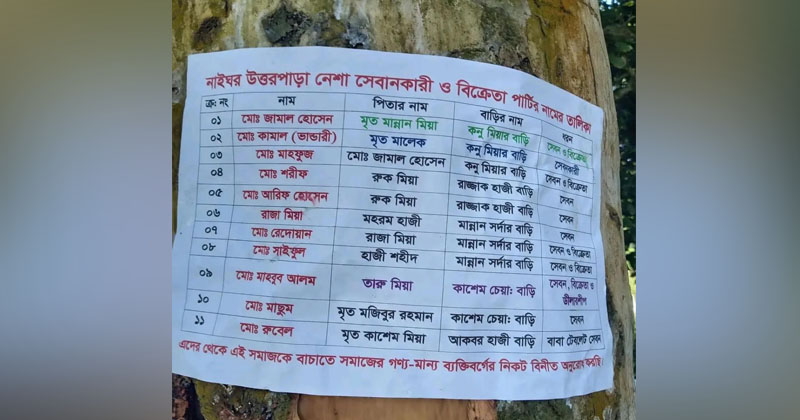 নাইঘর উত্তরপাড়া নেশা সেবানকারী ও বিক্রেতা পার্টির নামের তালিকা
ক্র: নং নাম পিতার নাম বাড়ির নাম ধরন
০১ মোঃ জামাল হোসেন মৃত মান্নান মিয়া কনু মিয়ার বাড়ি সেবন ও বিক্রেতা
০২ মোঃ কামাল (ভান্ডারী) মৃত মালেক কনু মিয়ার বাড়ি সেবনকারী
০৩ মোঃ মাহফুজ মোঃ জামাল হোসেন কনু মিয়ার বাড়ি সেবন ও বিক্রেতা
০৪ মোঃ শরীফ রুক মিয়া রাজ্জাক হাজী বাড়ি সেবন
০৫ মোঃ আরিফ হোসেন রুক মিয়া রাজ্জাক হাজী বাড়ি সেবন
০৬ রাজা মিয়া মহরম হাজী মান্নান সর্দার বাড়ি সেবন
০৭ মোঃ রেদোয়ান রাজা মিয়া মান্নান সর্দার বাড়ি সেবন ও বিক্রেতা
০৮ মোঃ সাইফুল হাজী শহীদ মান্নান সর্দার বাড়ি সেবন ও বিক্রেতা
০৯ মোঃ মাহবুব আলম তারু মিয়া কাশেম চেয়া: বাড়ি সেবন, বিক্রেতা ও ডীলারশীপ
১০ মোঃ মাছুম মৃত মজিবুর রহমান কাশেম চেয়া: বাড়ি সেবন
১১ মোঃ রুবেল মৃত কাশেম মিয়া আকবর হাজী বাড়ি বাবা টেবলেট সেবন
এদের থেকে এই সমাজকে বাচাতে সমাজের গণ্য-মান্য ব্যক্তিবর্গের নিকট বিনীত অনুরোধ করছি।